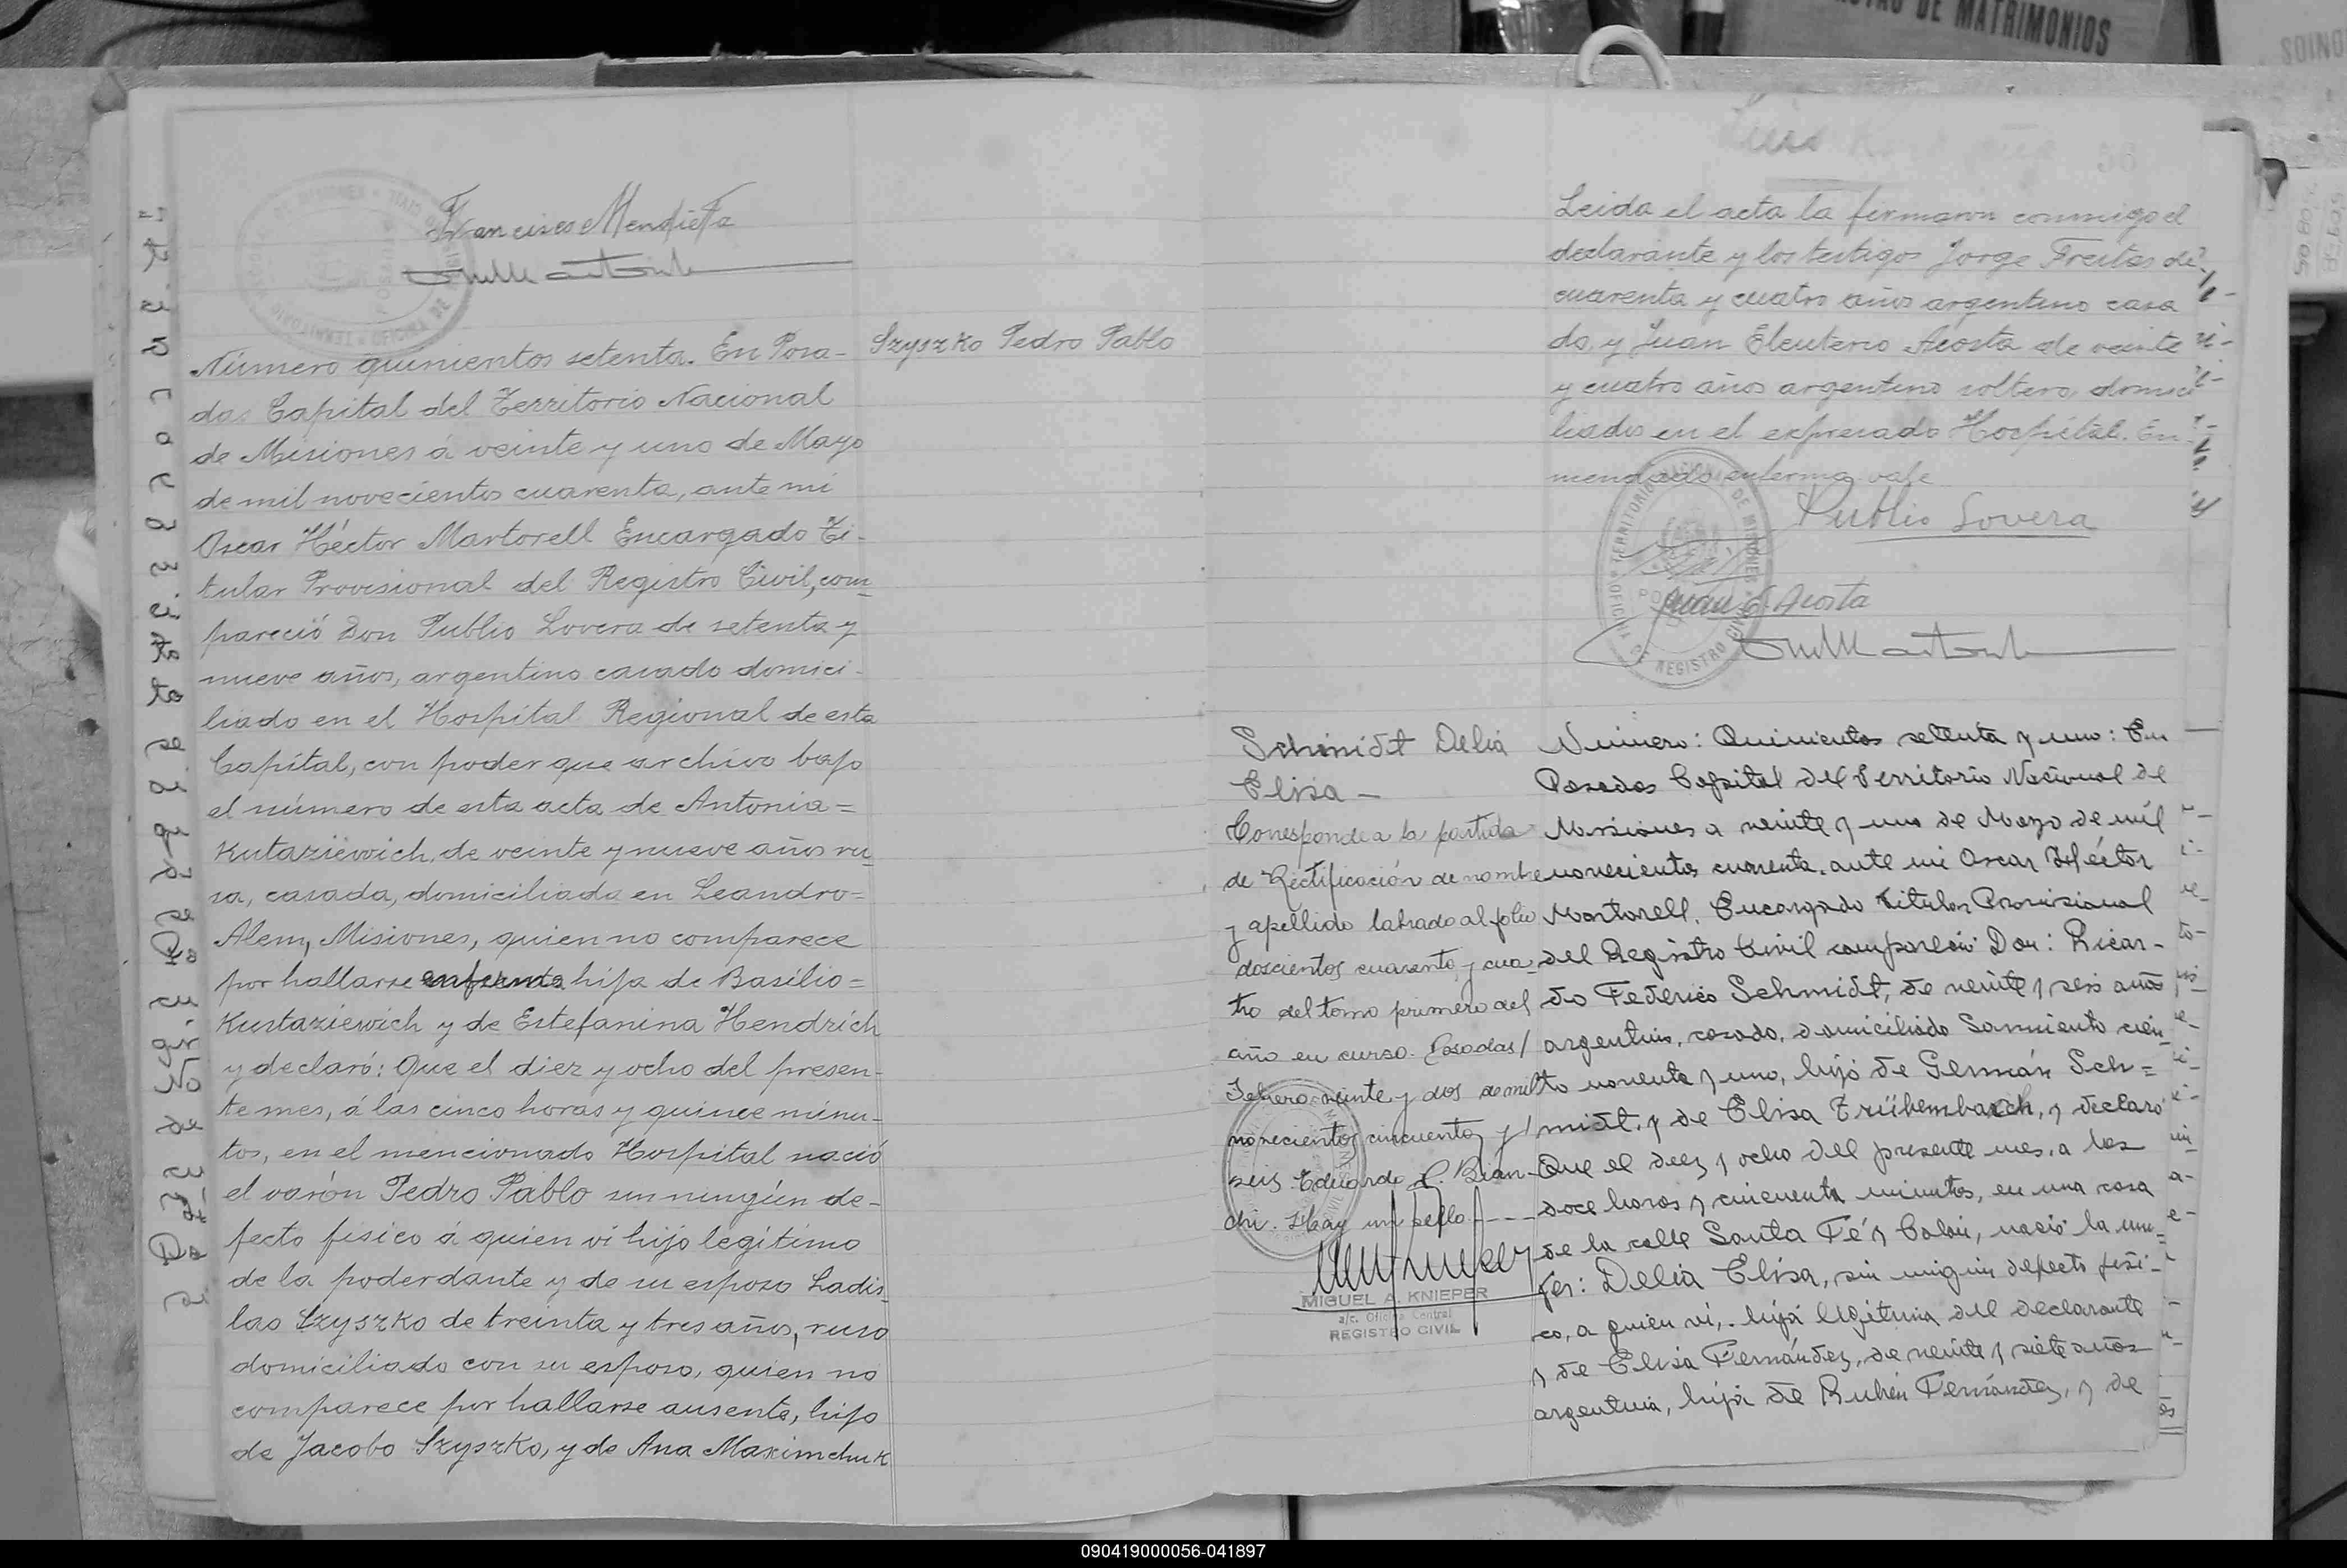 DE MATRIMONIOS
Francisco Mendieta
Número quinientos setenta. En Posa-
das Capital del Territorio Nacional
de Misiones á veinte y uno de Mayo
de mil novecientos cuarenta, ante mi
Oscar Héctor Martorell Encargado Ti-
tular Provisional del Registro Civil, com-
pareció Don Publio Lovera de setenta y
nueve años, argentino casado domici-
liado en el Hospital Regional de esta
Capital, con poder que archivo bajo
el número de esta acta de Antonia=
Kutaziewich, de veinte y nueve años ru-
sa, casada, domiciliada en Leandro=
Alem, Misiones, quien no comparece
por hallarse enferma hija de Basilio=
Kustaziewich y de Estefanina Hendrich
y declaró: Que el diez y ocho del presen-
te mes, á las cinco horas y quince minu-
tos, en el mencionado Hospital nació
el varón Pedro Pablo sin ningún de-
fecto físico á quien vi hijo legítimo
de la poderdante y de su esposo Ladis-
lao Szyszko de treinta y tres años, ruso
domiciliado con su esposa, quien no
comparece por hallarse ausente, hijo
de Jacobo Szyszko, y de Ana Maximchuk
Szyszko Pedro Pablo
56
Leida el acta la firmaron conmigo el
declarante y los testigos Jorge Freitas de
cuarenta y cuatro años argentino casa
do, y Juan Eleuterio Acosta de veinte
y cuatro años argentino soltero, domici
liados en el expresado Hospital. En-
mendado enferma vale
Publio Lovera
Juan E. Acosta
Schmidt Delia
Elisa -
Corresponde a la partida
de Rectificación de nombre
y apellido labrado al folio
doscientos cuarenta y cua-
tro del tomo primero del
año en curso. Posadas/
Febrero veinte y dos de mil
novecientos cincuenta y/
seis. Eduardo C. Bian-
chi. Hay un sello ----
MIGUEL A. KNIEPER
a/c. Oficina Central
REGISTRO CIVIL
Número: Quinientos setenta y uno: En
Posadas Capital del Territorio Nacional de
Misiones a veinte y uno de Mayo de mil
novecientos cuarenta, ante mi Oscar Héctor
Martorell, Encargado Titular Provisional
del Registro Civil compareció Don: Ricar-
do Federico Schmidt, de veinte y seis años
argentino, casado, domiciliado Sarmiento cien-
to noventa y uno, hijo de Germán Sch=
midt, y de Elisa Trühembarch, y declaró
Que el diez y ocho del presente mes, a las
doce horas y cincuenta minutos, en una casa
de la calle Santa Fé y Colón, nació la mu-
jer: Delia Elisa, sin ningún defecto físi-
co, a quien vi, hija legítima del declarante
y de Elisa Fernández, de veinte y siete años
argentina, hija de Rubén Fernández, y de
090419000056-041897